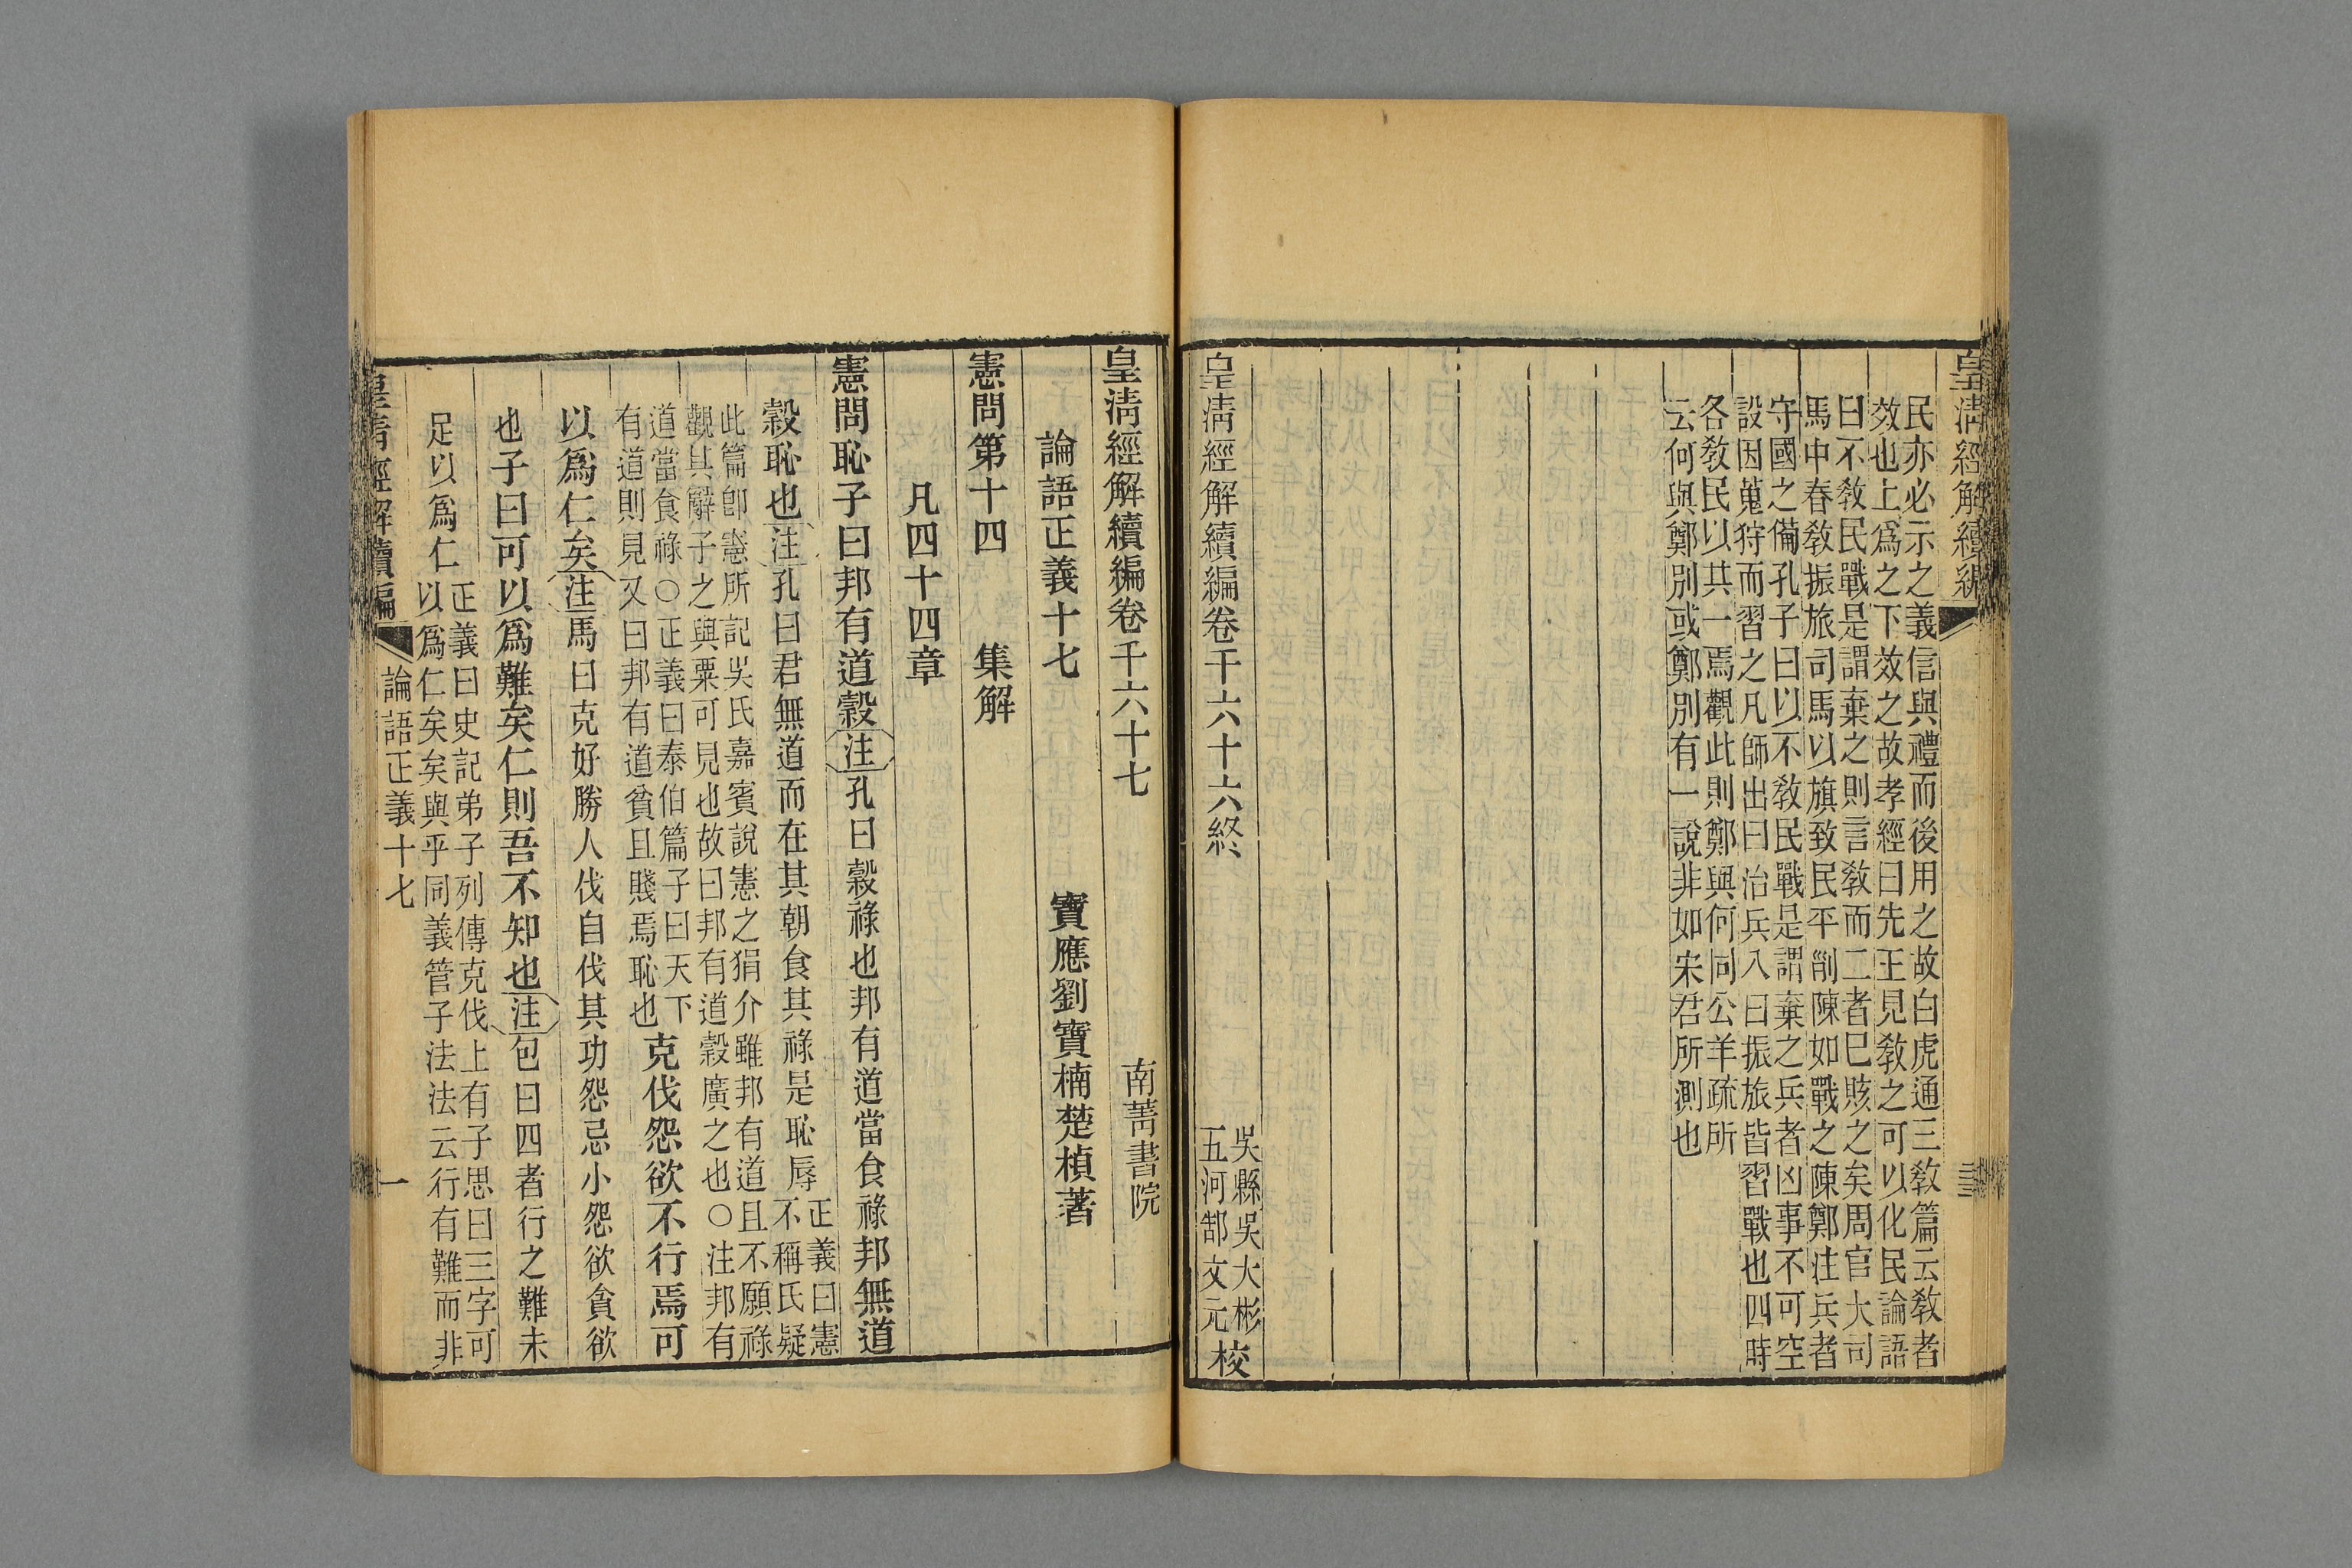 皇淸經解續編
民亦必示之義信與禮而後用之故白虎通三敎篇云敎者
效也上爲之下效之故孝經曰先王見敎之可以化民論語
曰不敎民戰是謂棄之則言敎而二者巳賅之矣周官大司
馬中春敎振旅司馬以旗致民平𠛬陳如戰之陳鄭注兵者
守國之備孔子曰以不敎民戰是謂棄之兵者凶事不可空
設因蒐狩而習之凡師出曰治兵入曰振旅皆習戰也四時
各敎民以其一焉觀此則鄭與何同公羊疏所
云何與鄭別或鄭別有一說非如宋君所測也
皇淸經解續編卷千六十六終
吳縣吳大彬
五河郜文元
校
皇淸經解續編卷千六十七
南菁書院
論語正義十七
寶應劉寶楠楚楨著
憲問第十四
集解
凡四十四章
憲問恥子曰邦有道穀注孔曰穀祿也邦有道當食祿邦無道
穀恥也注孔曰君無道而在其朝食其祿是恥辱
正義曰憲
不稱氏疑
此篇卽憲所記吳氏嘉賓說憲之狷介雖邦有道且不願祿
觀其辭子之與粟可見也故曰邦有道穀廣之也○注邦有
道當食祿○正義曰泰伯篇子曰天下
有道則見又曰邦有道貧且賤焉恥也
克伐怨欲不行焉可
以爲仁矣注馬曰克好勝人伐自伐其功怨忌小怨欲貪欲
也子曰可以爲難矣仁則吾不知也注包曰四者行之難未
足以爲仁
正義曰史記弟子列傳克伐上有子思曰三字可
以爲仁矣矣與乎同義管子法法云行有難而非
皇淸經解續編
論語正義十七
一